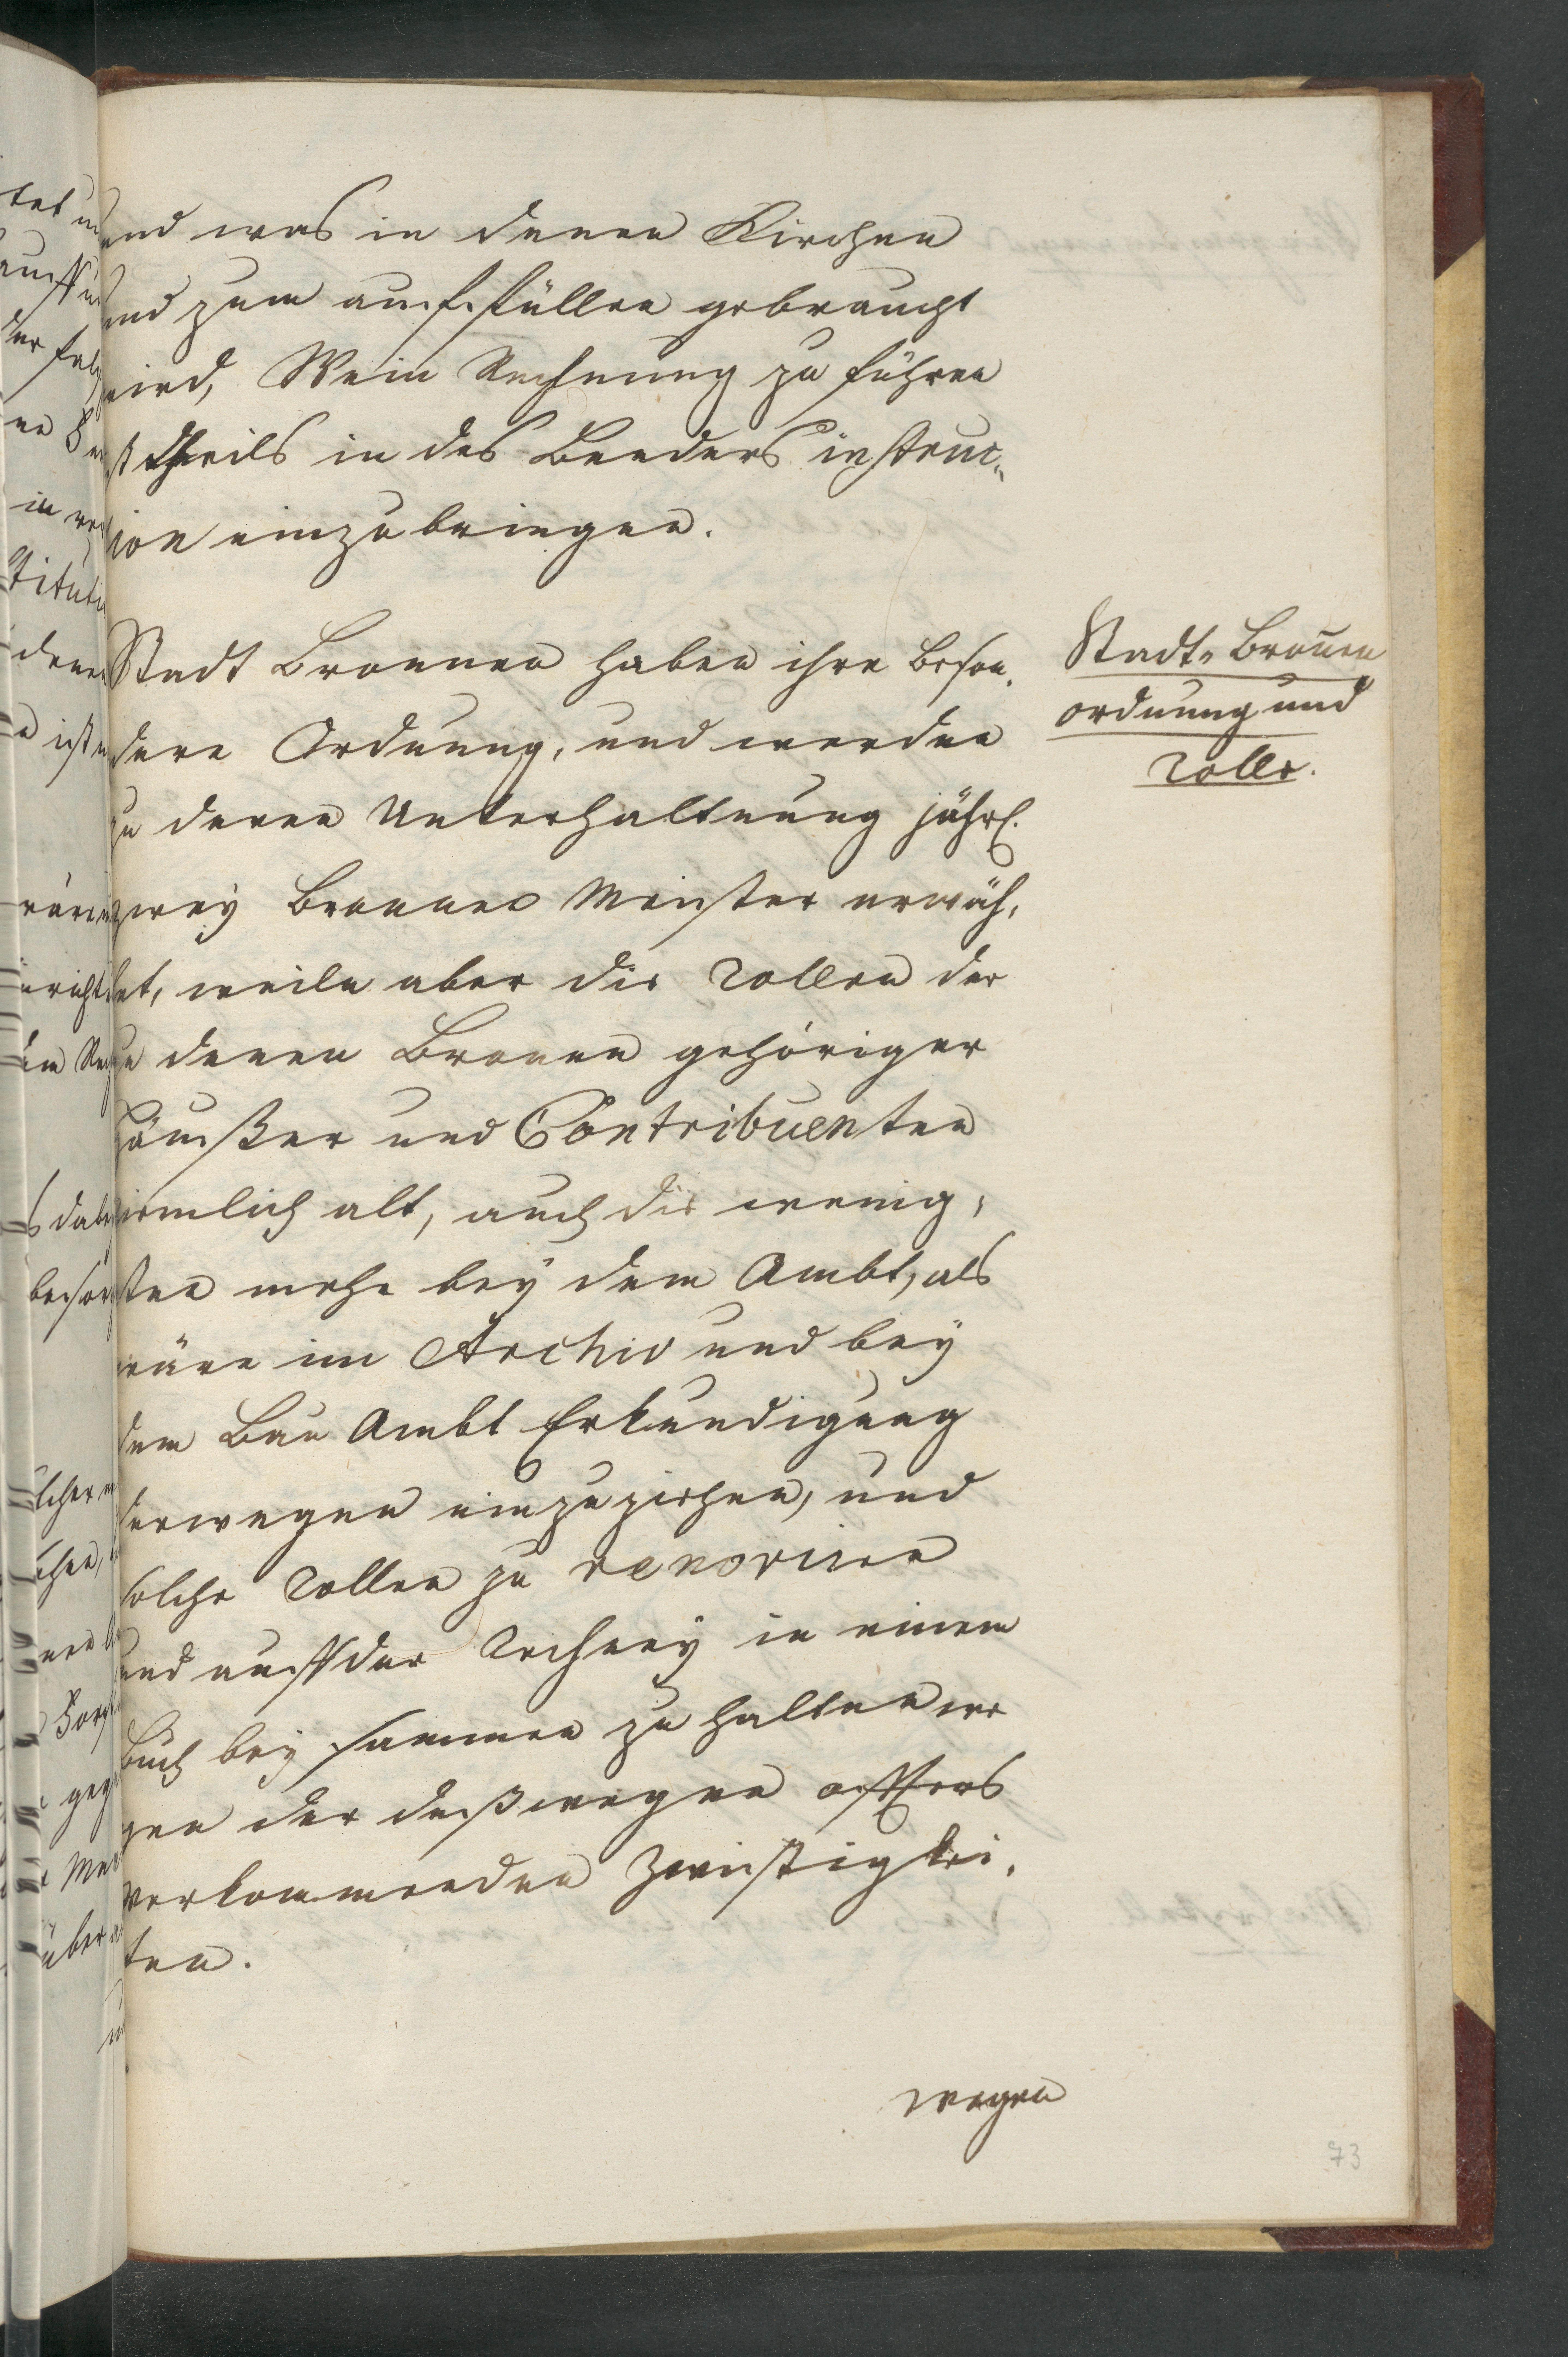 und was in denen Kirchen
und zum auffüllen gebraucht
wird, Wein Rechnung zu führen
ist theils in des Benders instruc„
tion einzubringen.
Stadt Bronnen haben ihre beson„
dere Ordnung, und werden
zu deren Unterhaltnung jährl.
zwey Bronnen Meister erwäh„
let, weiln aber die Rollen der
zu denen Bronnen gehöriger
häußer und Contribuenten
ziemlich alt, auch die wenig„
sten mehr bey dem Ambt, als
wäre im Archiv und bey
dem Bau Ambt Erkundigung
derwegen einzuziehen, und
solche Rollen zu renoviren
und auff der Recheney in einem
Buch bey sammen zu halten we
gen der deßwegen offters
vorkommenden Zwistigkei„
ten.
Stadt„ Bronen
ordnung und
Rolle.
wegen
73